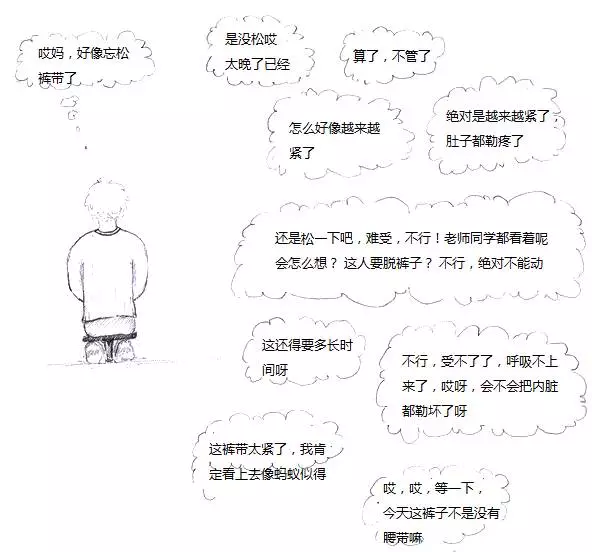 哎妈，好像忘松
裤带了
是没松哎
太晚了已经
算了，不管了
怎么好像越来越
紧了
绝对是越来越紧了，
肚子都勒疼了
还是松一下吧，难受，不行！老师同学都看着呢
会怎么想？ 这人要脱裤子？ 不行，绝对不能动
这还得要多长时
间呀
不行，受不了了，呼吸不上
来了，哎呀，会不会把内脏
都勒坏了呀
这裤带太紧了，我肯
定看上去像蚂蚁似得
哎，哎，等一下，
今天这裤子不是没有
腰带嘛